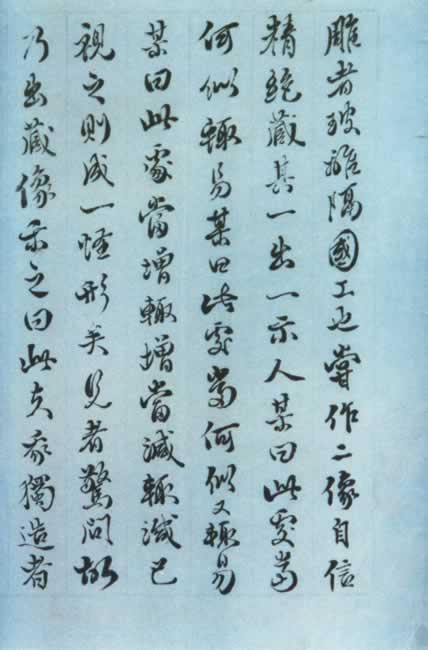 雕者國工也嘗作二像自信
精絶藏其一出一示人某曰此處當
何似輒易某曰此處當何似又輒易
某曰此處當增輒增當減輒減已
視之則成一怪形矣見者驚問故
乃出藏像示之曰此我獨造者